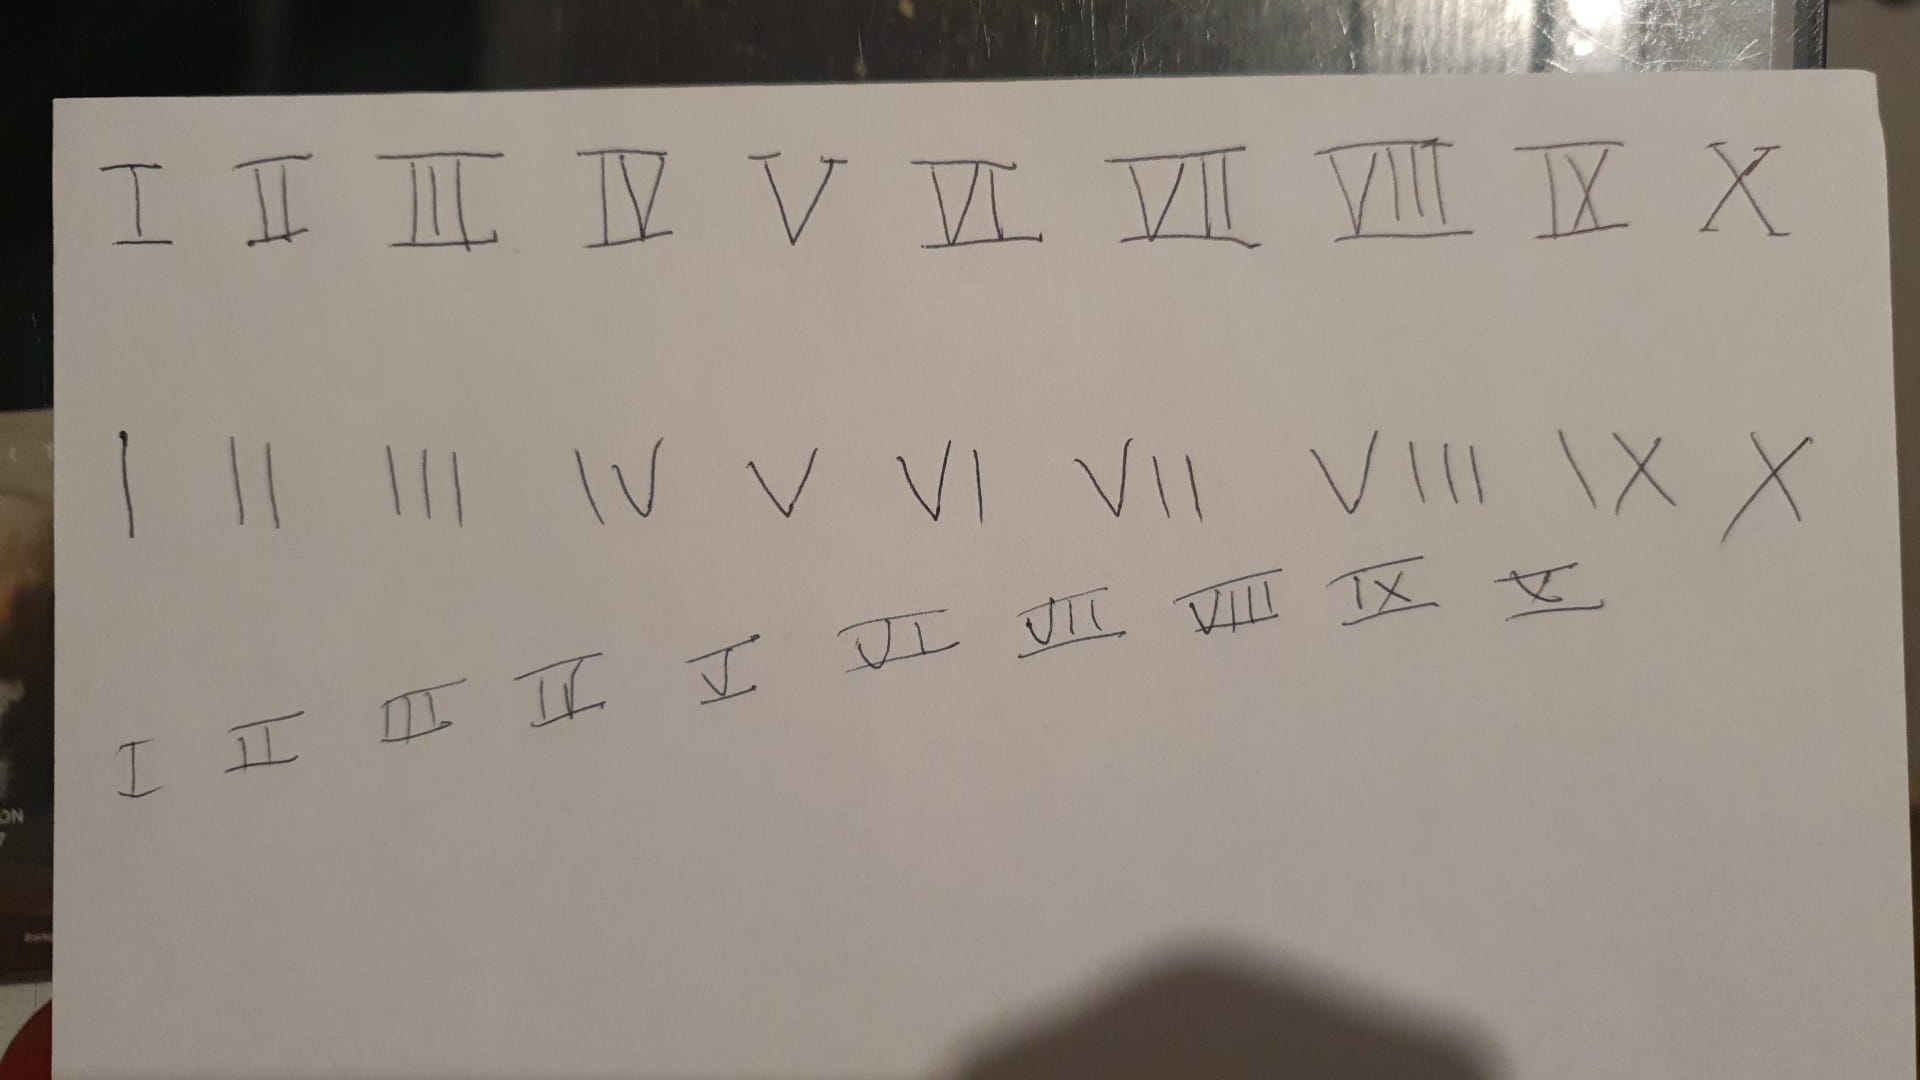 I II III IV V VI VII VIII IX X
I II III IV V VI VII VIII IX X
I II III IV V VI VII VIII IX X
ON